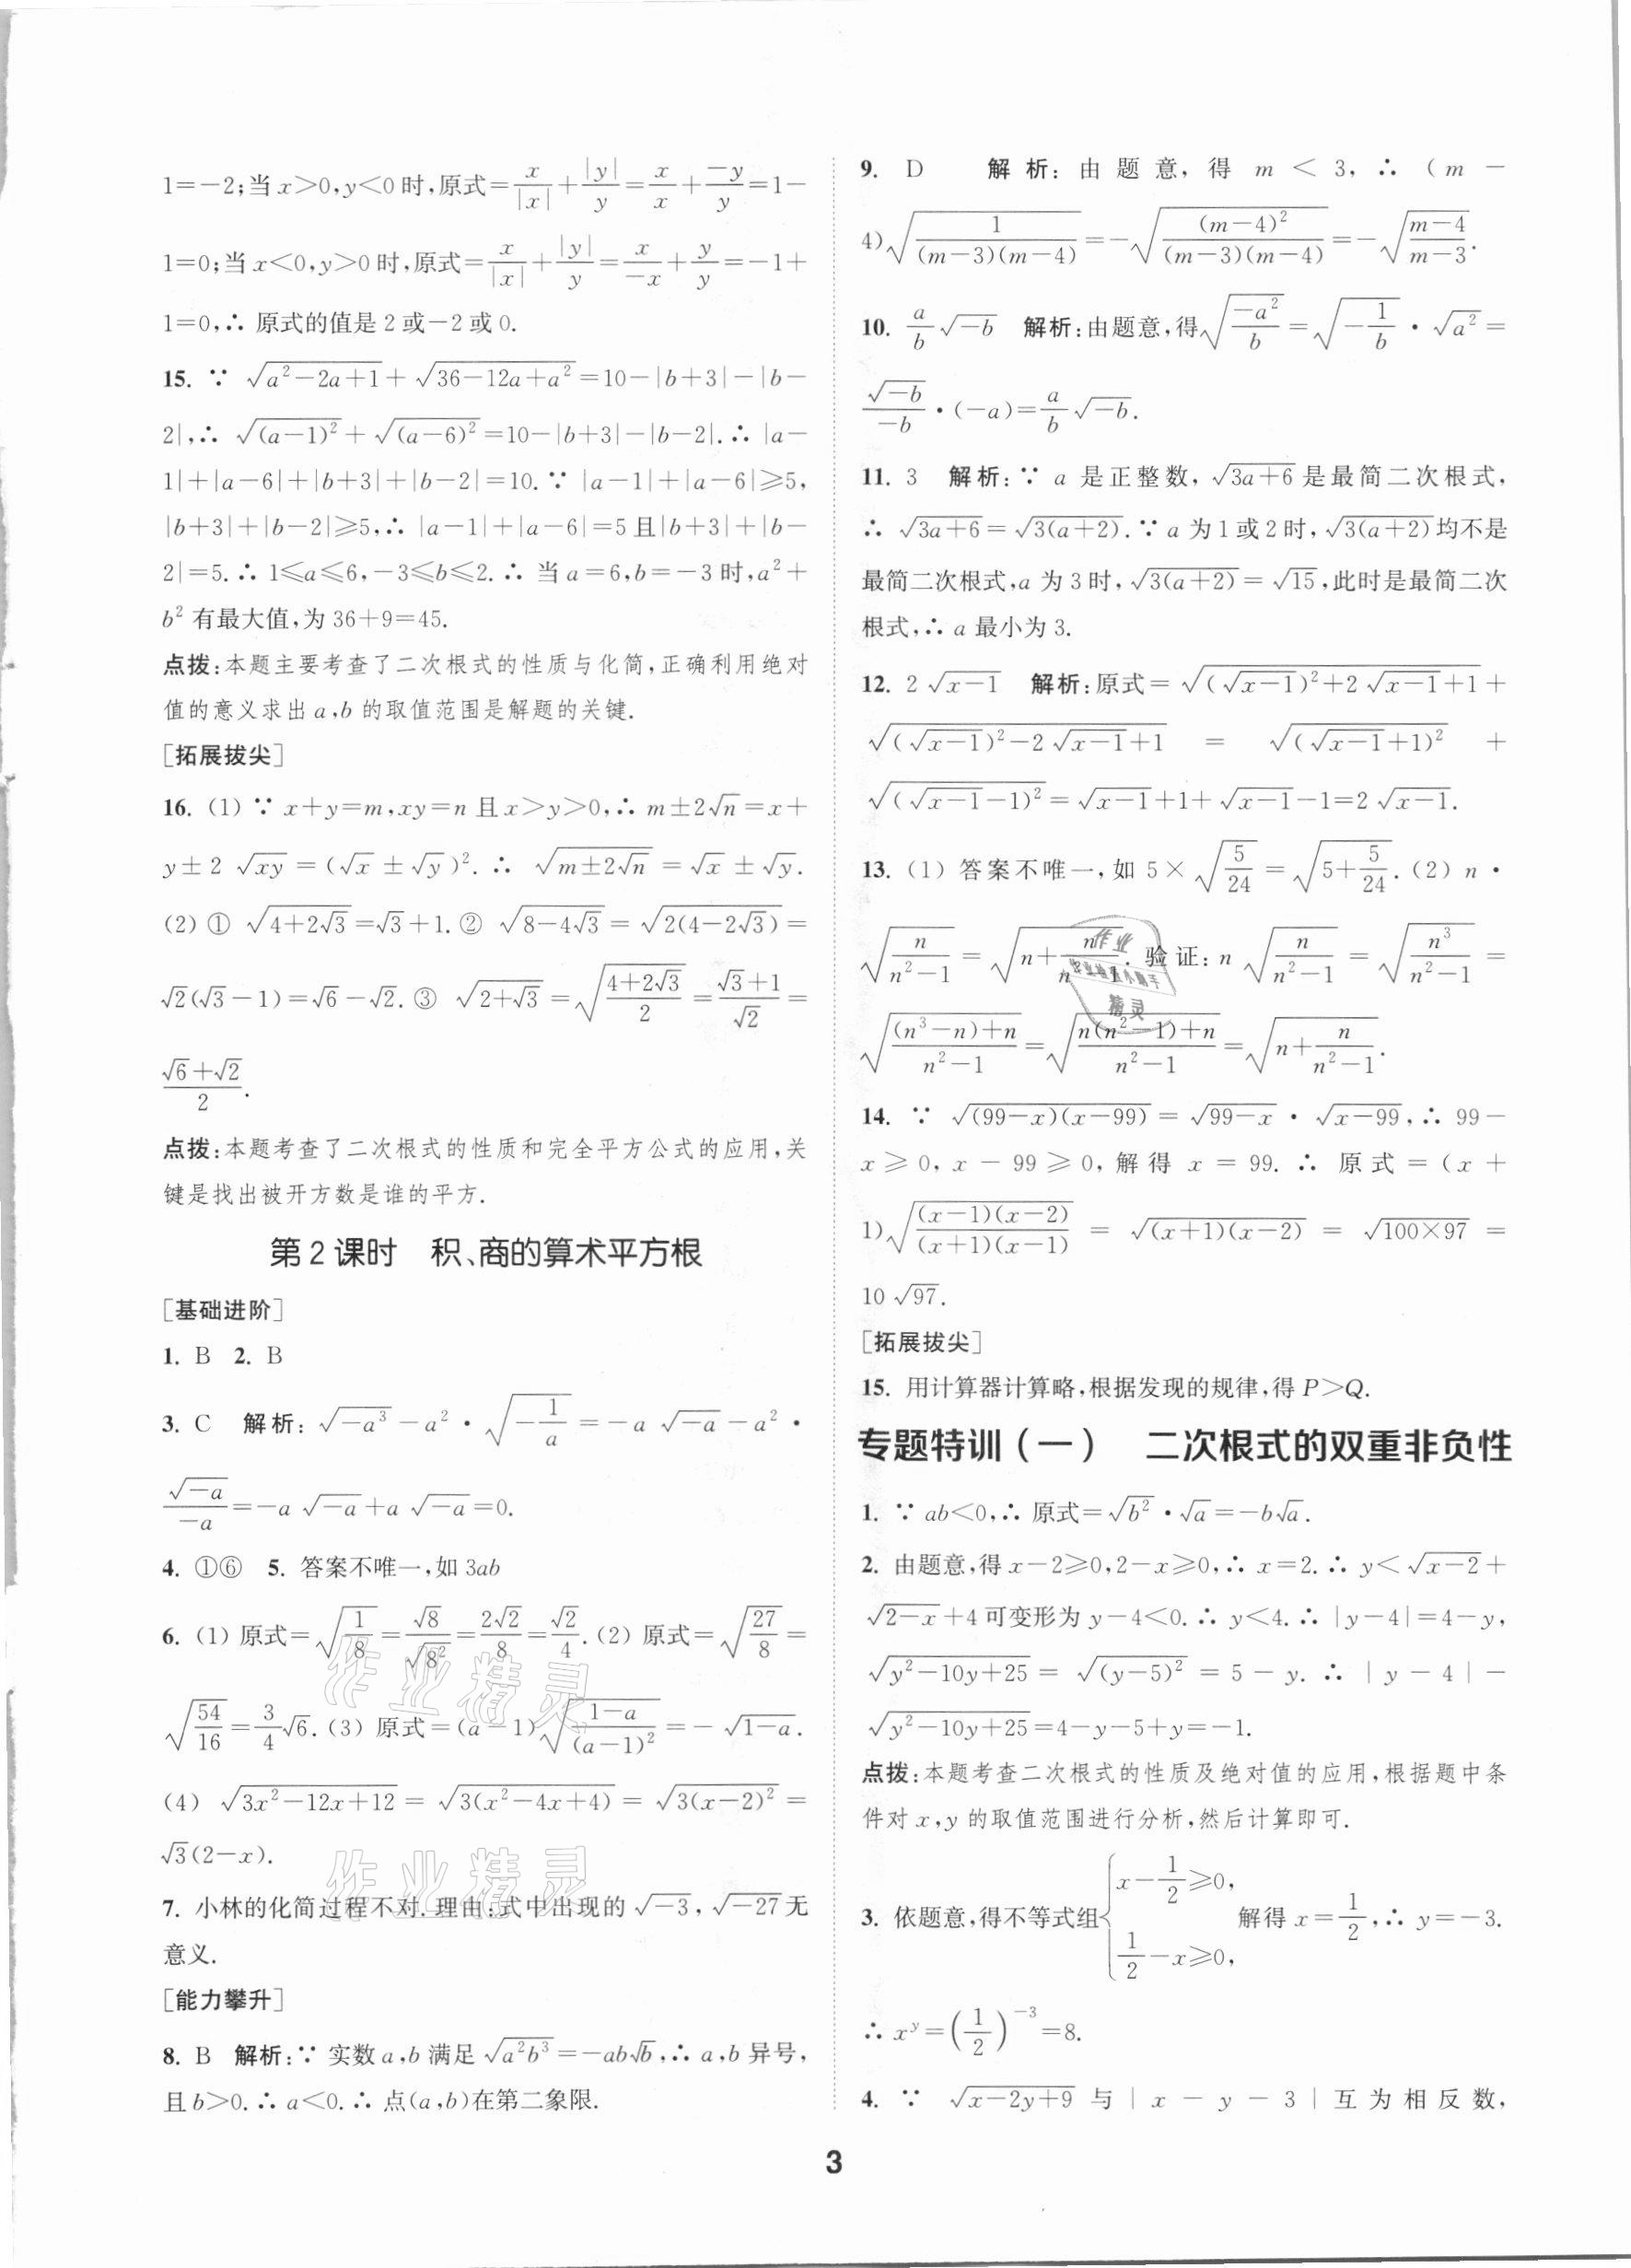 1=-2;当 x>0,y<0 时,原式=x/|x|+|y|/y=x/x+(-y)/y=1-
1=0;当 x<0,y>0 时,原式=x/|x|+|y|/y=x/(-x)+y/y=-1+
1=0,∴ 原式的值是 2 或-2 或 0.
15. ∵ √(a²-2a+1)+√(36-12a+a²)=10-|b+3|-|b-
2|,∴ √((a-1)²)+√((a-6)²)=10-|b+3|-|b-2|.∴ |a-
1|+|a-6|+|b+3|+|b-2|=10.∵ |a-1|+|a-6|≥5,
|b+3|+|b-2|≥5,∴ |a-1|+|a-6|=5 且|b+3|+|b-
2|=5.∴ 1≤a≤6,-3≤b≤2.∴ 当 a=6,b=-3 时,a²+
b² 有最大值,为 36+9=45.
点拨:本题主要考查了二次根式的性质与化简,正确利用绝对
值的意义求出 a,b 的取值范围是解题的关键.
[拓展拔尖]
16. (1) ∵ x+y=m,xy=n 且 x>y>0,∴ m±2√n=x+
y±2√(xy)=(√x±√y)².∴ √(m±2√n)=√x±√y.
(2) ① √(4+2√3)=√3+1.② √(8-4√3)=√(2(4-2√3))=
√2(√3-1)=√6-√2.③ √(2+√3)=√((4+2√3)/2)=(√3+1)/√2=
(√6+√2)/2.
点拨:本题考查了二次根式的性质和完全平方公式的应用,关
键是找出被开方数是谁的平方.
第 2 课时 积、商的算术平方根
[基础进阶]
1. B 2. B
3. C 解析:√(-a³)-a²·√(-1/a)=-a√(-a)-a²·
√(-a)/(-a)=-a√(-a)+a√(-a)=0.
4. ①⑥ 5. 答案不唯一,如 3ab
6. (1) 原式=√(1/8)=√8/√(8²)=2√2/8=√2/4.(2) 原式=√(27/8)=
√(54/16)=3/4√6.(3) 原式=(a-1)√((1-a)/(a-1)²)=-√(1-a).
(4) √(3x²-12x+12)=√(3(x²-4x+4))=√(3(x-2)²)=
√3(2-x).
7. 小林的化简过程不对.理由:式中出现的 √-3,√-27无
意义.
[能力攀升]
8. B 解析:∵ 实数 a,b 满足 √(a²b³)=-ab√b,∴ a,b 异号,
且 b>0.∴ a<0.∴ 点(a,b)在第二象限.
9. D 解析:由题意,得 m<3,∴ (m-
4)√(1/((m-3)(m-4)))=-√((m-4)²/((m-3)(m-4)))=-√((m-4)/(m-3)).
10. a/b√(-b) 解析:由题意,得√(-a²/b)=√(-1/b)·√(a²)=
√(-b)/(-b)·(-a)=a/b√(-b).
11. 3 解析:∵ a 是正整数,√(3a+6)是最简二次根式,
∴ √(3a+6)=√(3(a+2)).∵ a 为 1 或 2 时,√(3(a+2))均不是
最简二次根式,a 为 3 时,√(3(a+2))=√15,此时是最简二次
根式,∴ a 最小为 3.
12. 2√(x-1) 解析:原式=√((√(x-1))²+2√(x-1)+1)+
√((√(x-1))²-2√(x-1)+1)=√((√(x-1)+1)²)+
√((√(x-1)-1)²)=√(x-1)+1+√(x-1)-1=2√(x-1).
13. (1) 答案不唯一,如 5×√(5/24)=√(5+5/24).(2) n·
√(n/(n²-1))=√(n+n/n.验证:n√(n/(n²-1))=√(n³/(n²-1))=
√(((n³-n)+n)/(n²-1))=√((n(n²-1)+n)/(n²-1))=√(n+n/(n²-1)).
14. ∵ √((99-x)(x-99))=√(99-x)·√(x-99),∴ 99-
x≥0,x-99≥0,解得 x=99.∴ 原式=(x+
1)√(((x-1)(x-2))/((x+1)(x-1)))=√((x+1)(x-2))=√(100×97)=
10√97.
[拓展拔尖]
15. 用计算器计算略,根据发现的规律,得 P>Q.
专题特训(一) 二次根式的双重非负性
1. ∵ ab<0,∴ 原式=√(b²)·√a=-b√a.
2. 由题意,得 x-2≥0,2-x≥0,∴ x=2.∴ y<√(x-2)+
√(2-x)+4 可变形为 y-4<0.∴ y<4.∴ |y-4|=4-y,
√(y²-10y+25)=√((y-5)²)=5-y.∴ |y-4|-
√(y²-10y+25)=4-y-5+y=-1.
点拨:本题考查二次根式的性质及绝对值的应用,根据题中条
件对 x,y 的取值范围进行分析,然后计算即可.
3. 依题意,得不等式组{x-1/2≥0, 1/2-x≥0, 解得 x=1/2,∴ y=-3.
∴ x^y=(1/2)^-3=8.
4. ∵ √(x-2y+9)与|x-y-3|互为相反数,
3
作业精灵
作业精灵
作业
精灵